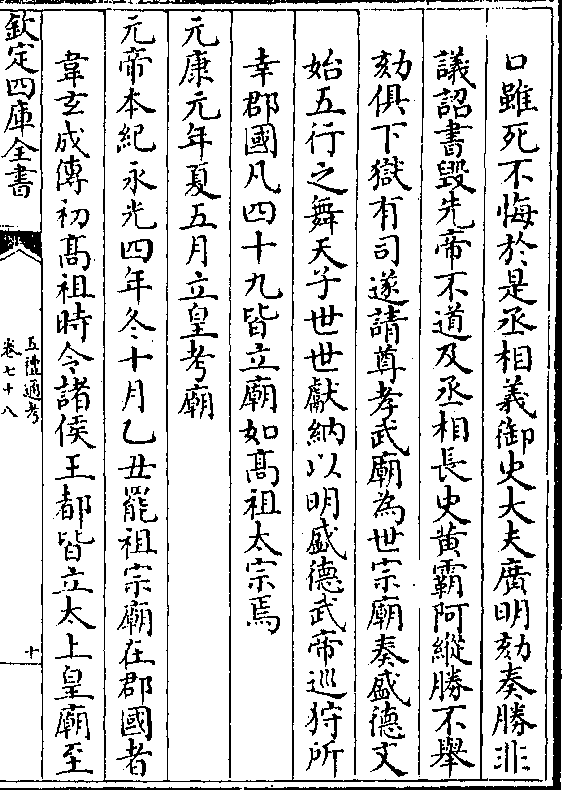 口雖死不悔於是丞相義御史大夫廣明劾奏勝非
議詔書毀先帝不道及丞相長史黃霸阿縱勝不舉
劾俱下獄有司遂請尊孝武廟為世宗廟奏盛德文
始五行之舞天子世世獻納以明盛德武帝巡狩所
幸郡國凡四十九皆立廟如髙祖太宗焉
元康元年夏五月立皇考廟
元帝本紀永光四年冬十月乙丑罷祖宗廟在郡國者
韋玄成傳初髙祖時令諸侯王都皆立太上皇廟至
欽定四庫全書
五禮通考
卷七十八
十